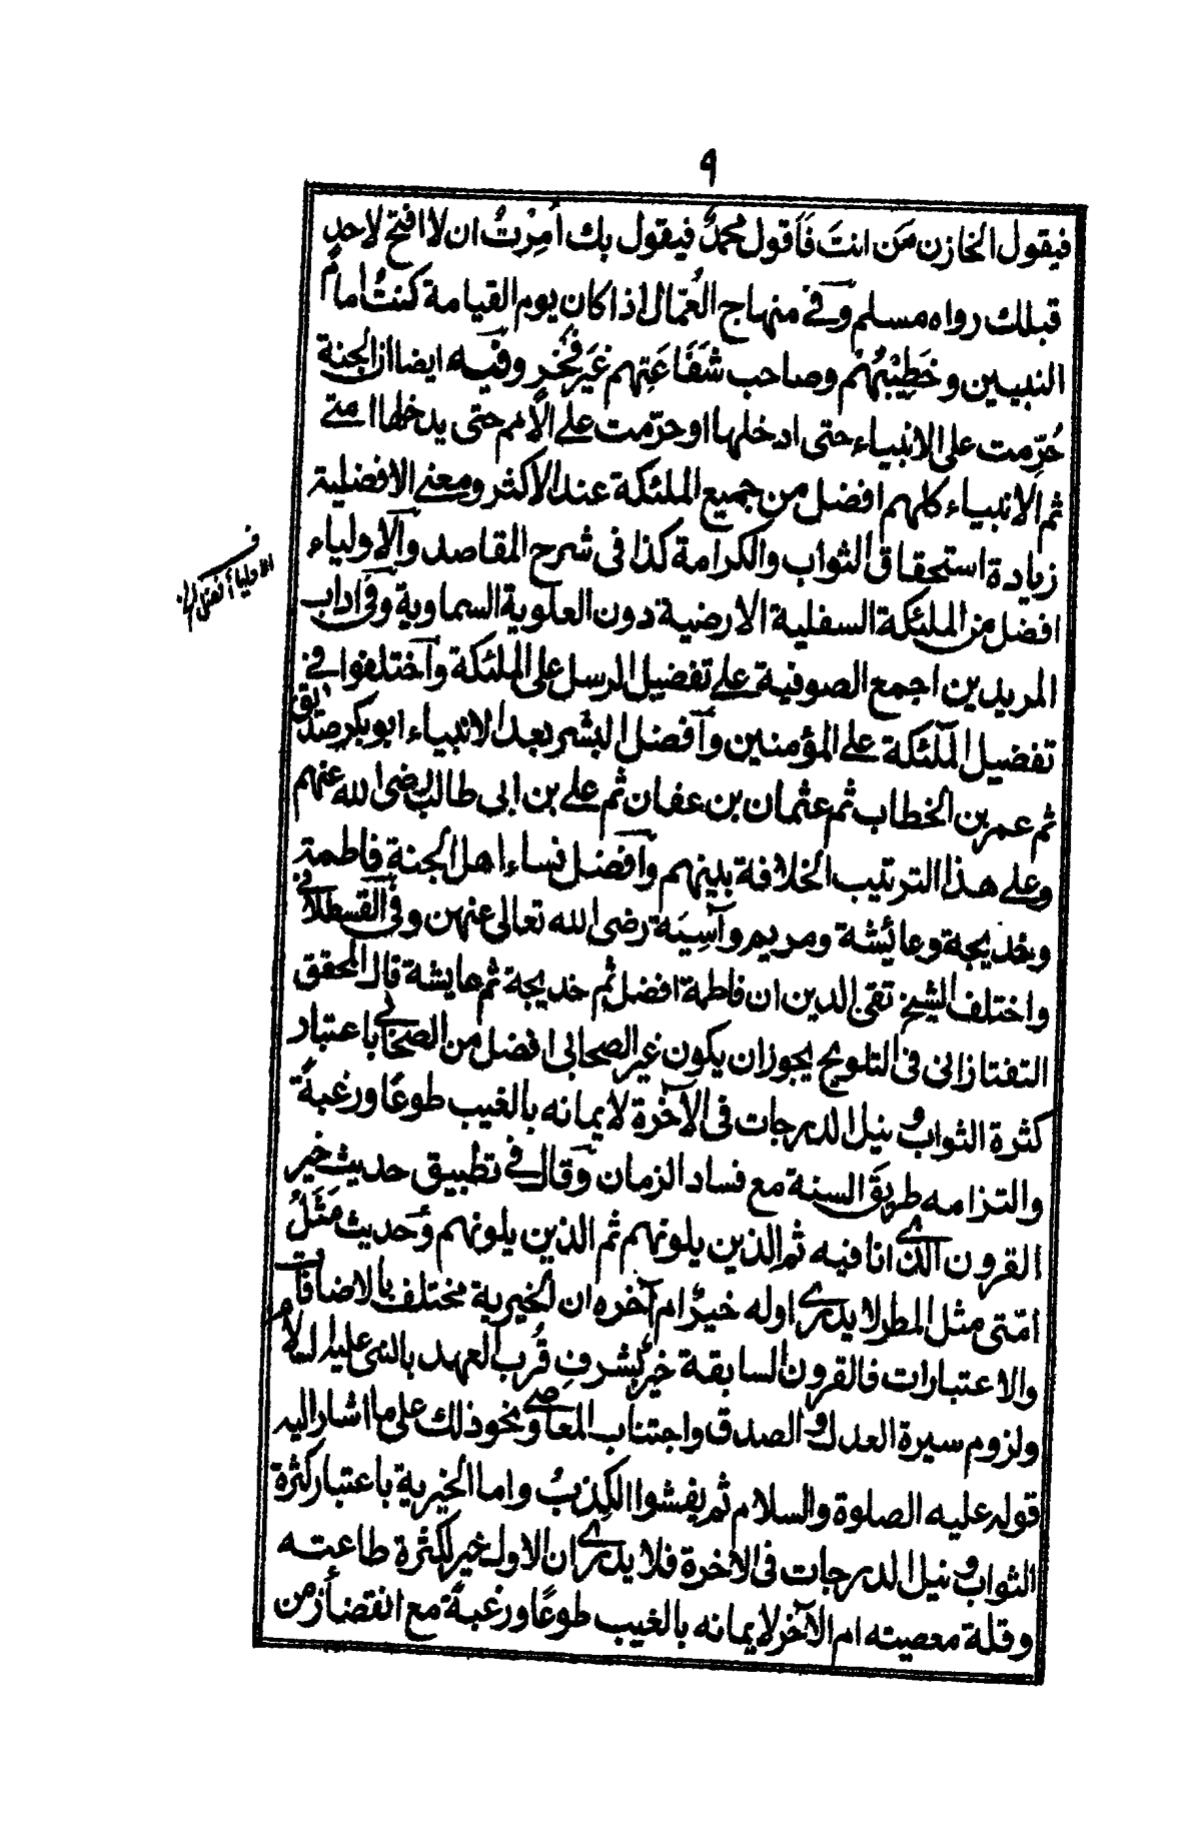 ٩
فيقول الخازن مَن انتَ فَاَقول محمدٌ فيقول بك اُمِرْتُ ان لا افتح لاحدٍ
قبلك رواه مسلم وفي منهاج العُمّال اذا كان يوم القيامة كنتُ امامُ
النبيين وخَطِيْبُهُمْ وصاحب شَفَاعَتِهم غَيْرُ فَخْرٍ وفيه ايضا ان الجنة
حُرِّمت على الانبياء حتى ادخلها او حرّمت علے الاُمم حتى يدخلها امتے
ثم الانبياء كلهم افضل من جميع الملئكة عند الاكثر ومعنے الافضلية
زيادة استحقاق الثواب والكرامة كذا فى شرح المقاصد والاولياء
افضل من الملئكة السفلية الارضية دون العلوية السماوية وفى اداب
المريدين اجمع الصوفية علے تفضيل الرسل على الملئكة واختلفوا في
تفضيل الملئكة علے المؤمنين وافضل البشر بعد الانبياء ابو بكر صديق
ثم عمر بن الخطاب ثم عثمان بن عفان ثم علے بن ابى طالب رضى الله عنهم
وعلے هذا الترتيب الخلافة بينهم وافضل نساء اهل الجنة فاطمة
وخديجة وعائيشة ومريم وآسِيَة رضى الله تعالى عنهن وفى القسطلانى
واختلف الشيخ تقى الدين ان فاطمة افضل ثم خديجة ثم عايشة قال المحقق
التفتازانى فى التلويح يجوز ان يكون غير الصحابى افضل من الصحابى باعتبار
كثرة الثواب و نيل الدرجات فى الآخرة لايمانه بالغيب طوعًا ورغبةً
والتزامه طريقَ السنة مع فساد الزمان وقال في تطبيق حديث خير
القرون الذى انا فيه ثم الذين يلونهم ثم الذين يلونهم وحديث مَثَلُ
امّتى مثل المطر لا يدرے اوله خيرٌ ام آخره ان الخيرية مختلف بالاضافات
والاعتبارات فالقرون السابقة خير بشرفِ قُرب العهد بالنبى عليه السلام
ولزوم سيرة العدل و الصدق واجتناب المعاصے ونحو ذلك على ما اشار اليه
قوله عليه الصلوة والسلام ثم يفشوا الكِذبُ واما الخيرية باعتبار كثرة
الثواب و نيل الدرجات فى الاخرة فلا يدرے ان الاول خير لكثرة طاعته
وقلة معصيته ام الآخر لايمانه بالغيب طوعًا ورغبةً مع انقضاء زمن
ف
الاولياء أفضل